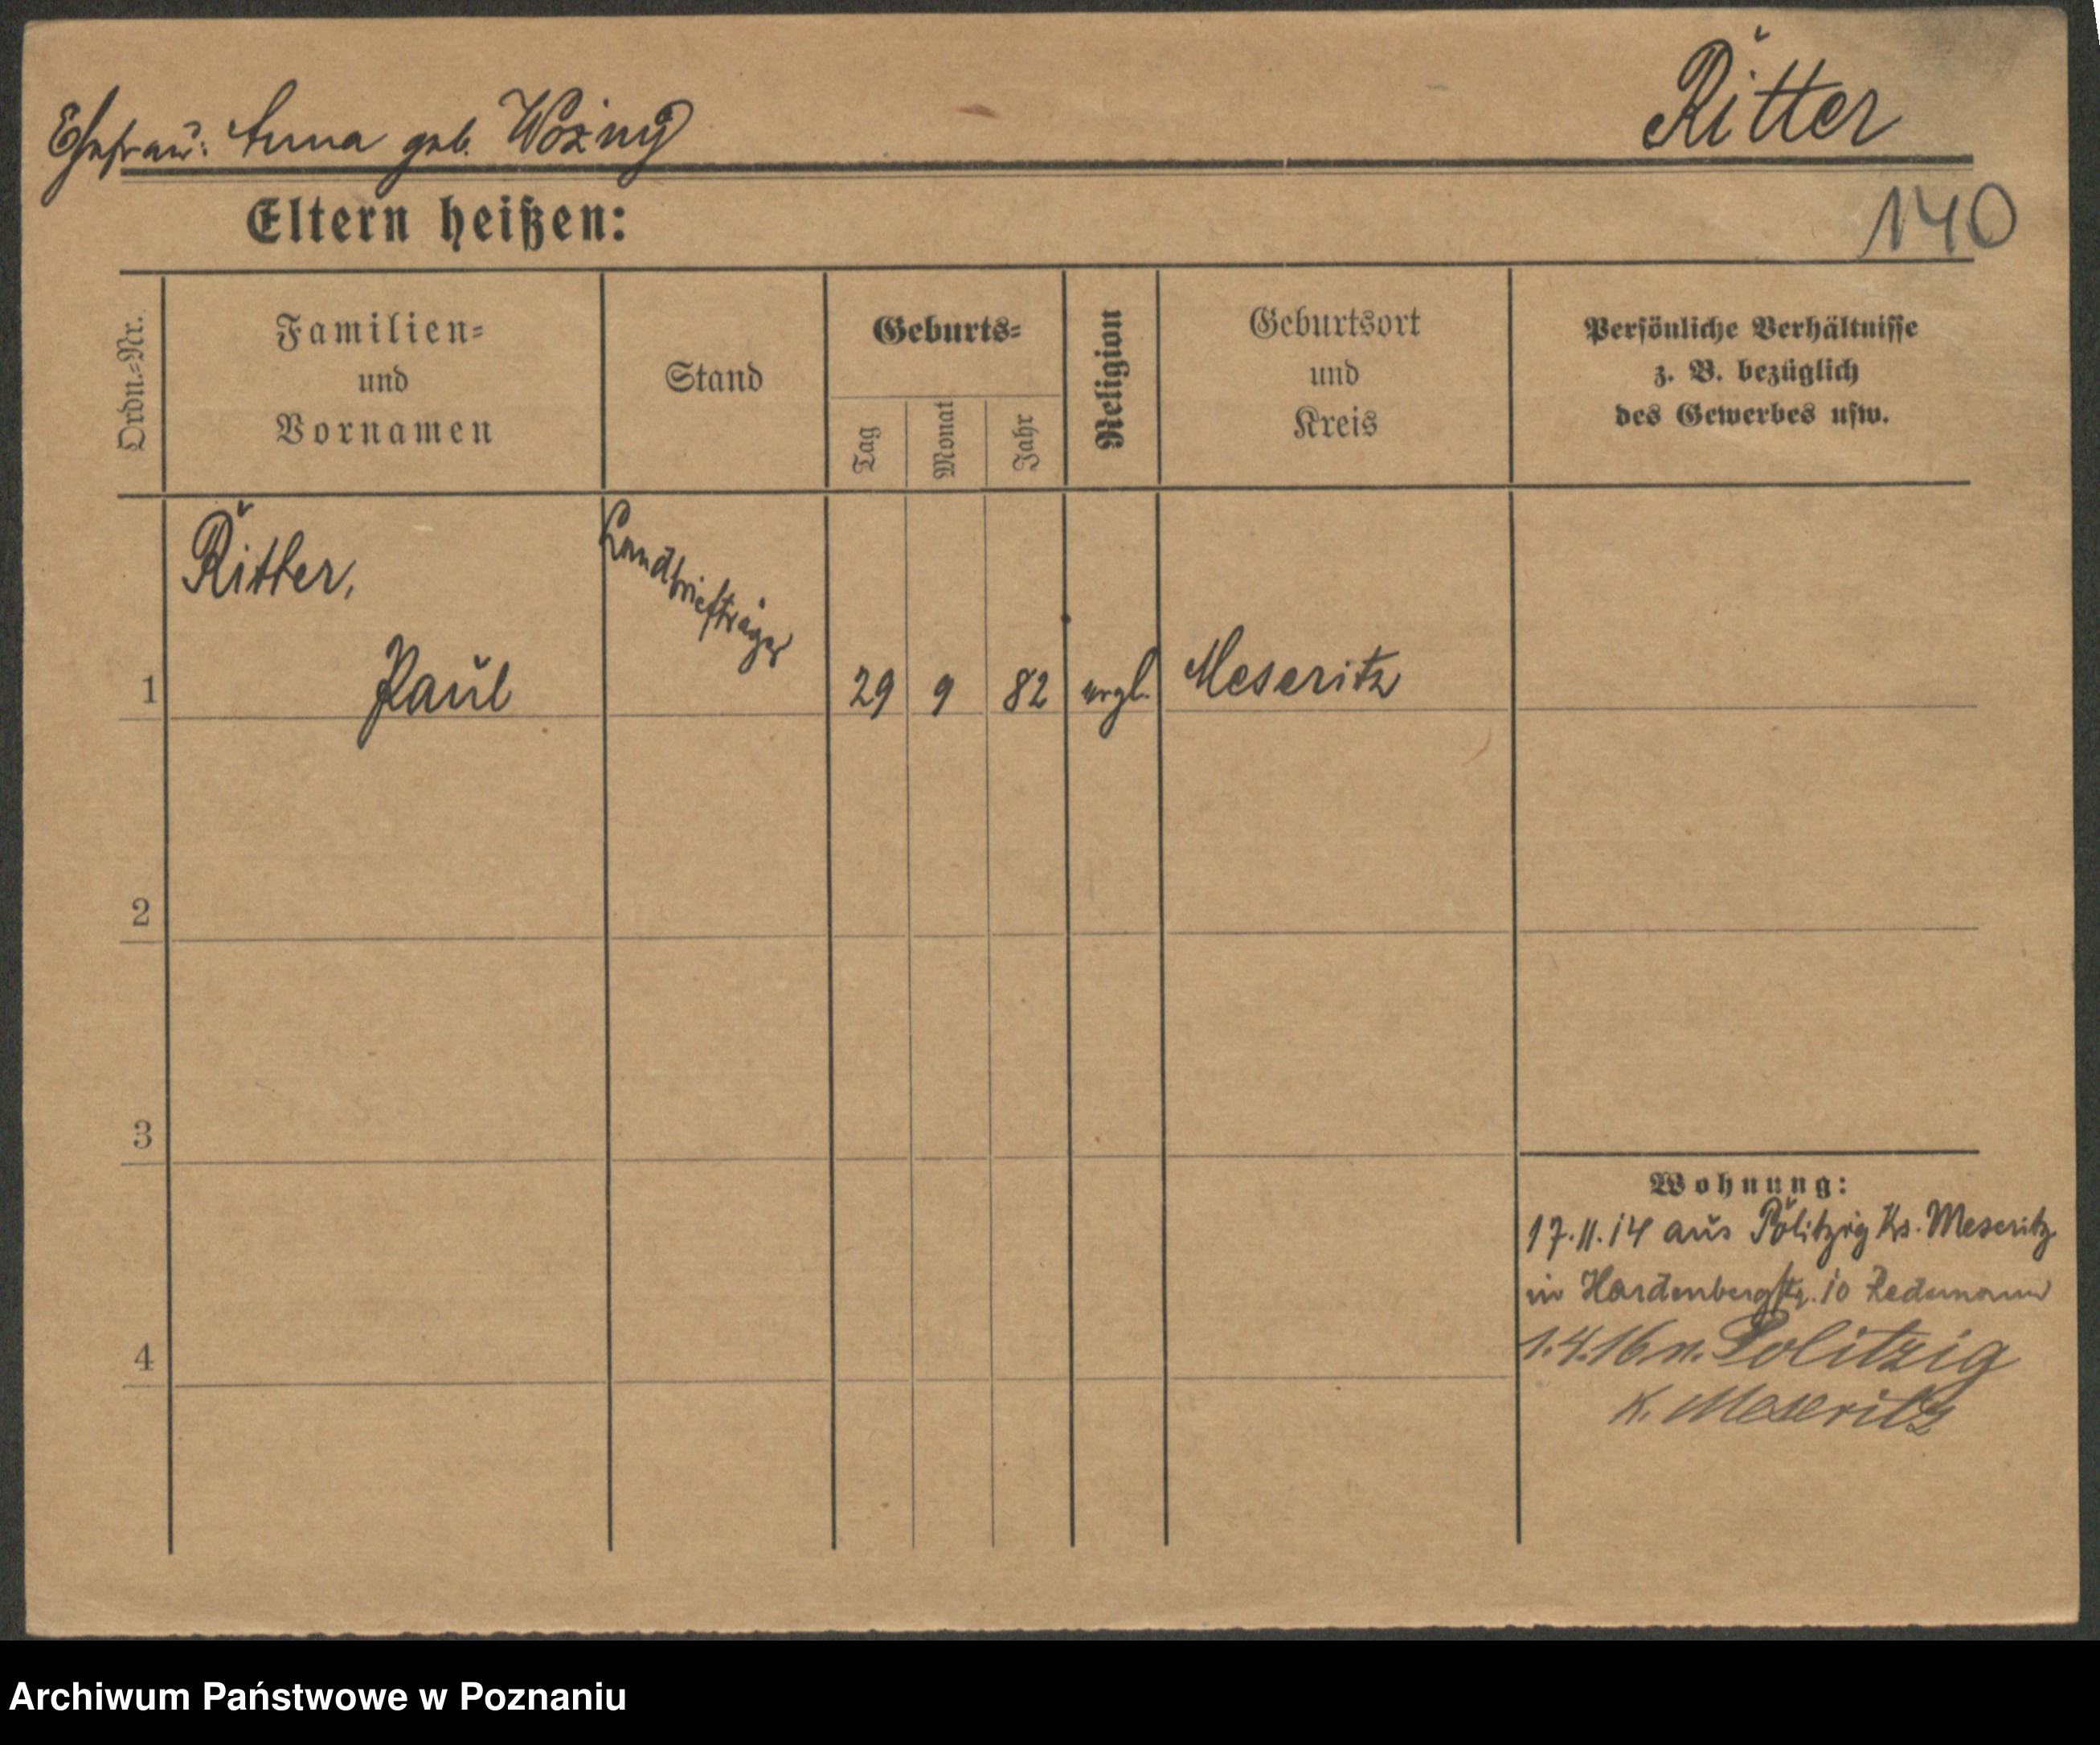 Ritter
Ehefrau: Anna geb. Wożny
Eltern heißen:
140
Ordn.=Nr.
Familien=
und
Vornamen
Stand
Geburts=
Tag
Monat
Jahr
Religion
Geburtsort
und
Kreis
Persönliche Verhältnisse
z. B. bezüglich
des Gewerbes usw.
1
Ritter,
Paul
Landbriefträger
29
9
82
evgl.
Meseritz
2
3
4
Wohnung:
17.11.14 aus Politzig Ks. Meseritz
in Hardenbergstr. 10
1.4.16 n. Politzig
K. Meseritz
Archiwum Państwowe w Poznaniu